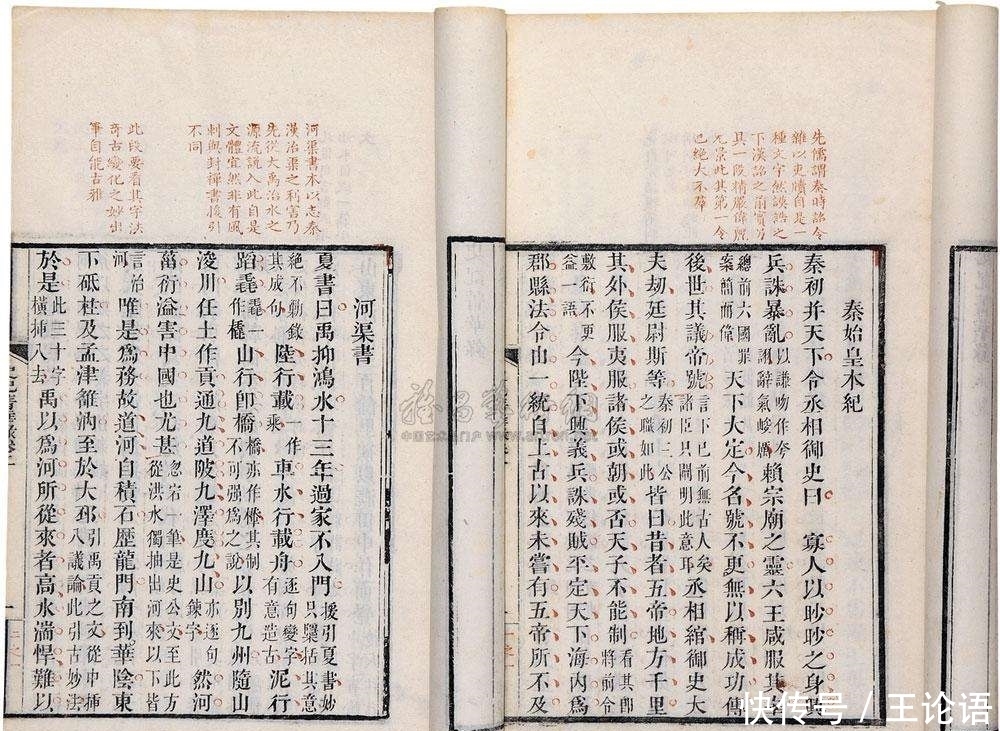 先儒謂秦時詔令
雖以吏牘自是一
種文字然謨誥之
下漢詔之前實乃
具一段精嚴偉麗
光景此其第一令
已絕大不群
秦始皇本紀
秦初并天下令丞相御史曰 寡人以眇眇之身興
兵誅暴亂以謙吻作夸詡辭氣峻厲賴宗廟之靈六王咸服其
總前六國罪案簡而偉天下大定今名號不更無以稱成功傳
後世其議帝號言下已前無古人矣諸臣只闡明此意耳丞相綰御史大
夫劫廷尉斯等秦初三公之職如此皆曰昔者五帝地方千里
其外侯服夷服諸侯或朝或否天子不能制看其即將前令
敷衍不更益一語今陛下興義兵誅殘賊平定天下海內爲
郡縣法令由一統自上古以來未嘗有五帝所不及
河渠書本以志秦
漢治渠之利害乃
先從大禹治水之
源流説入此自是
文體宜然非有風
刺與封禪書援引
不同
此段要看其字法
奇古變化之妙出
筆自能古雅
河渠書
夏書曰禹抑鴻水十三年過家不入門援引夏書妙只檃括其意
絕不勦錄其成句陸行載一作乘車水行載舟逐句變字有意造古泥行
蹈毳毳一作橇山行卽橋橋亦作檋其制不可强爲之說以別九州隨山
浚川任土作貢通九道陂九澤度九山亦逐句鍊字然河
菑衍溢害中國也尤甚忽宕一筆是史公文至此方從洪水獨抽出河來以下皆
言治河唯是爲務故道河自積石歷龍門南到華陰東
下砥柱及孟津雒汭至於大邳引禹貢之文從中插八議論此引古妙法
於是此三十字橫插入去禹以爲河所從來者高水湍悍難以
中国艺术品门户网
快传号 / 王论语